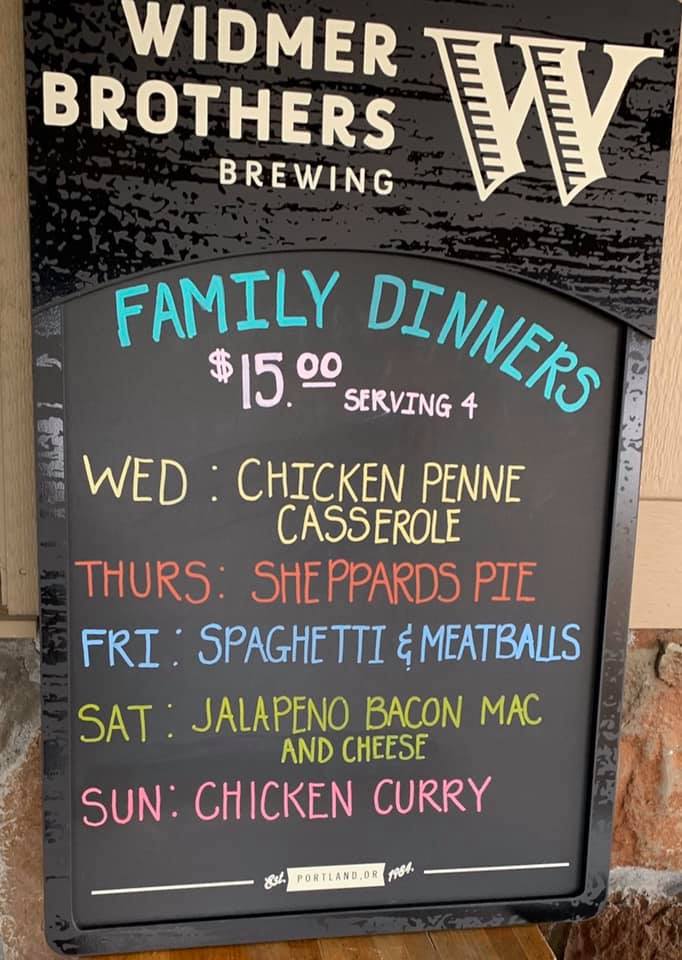 WIDMER
BROTHERS
BREWING
W
FAMILY DINNERS
$15.00 SERVING 4
WED : CHICKEN PENNE
CASSEROLE
THURS: SHEPPARDS PIE
FRI : SPAGHETTI & MEATBALLS
SAT : JALAPENO BACON MAC
AND CHEESE
SUN: CHICKEN CURRY
Est. PORTLAND, OR 1984.